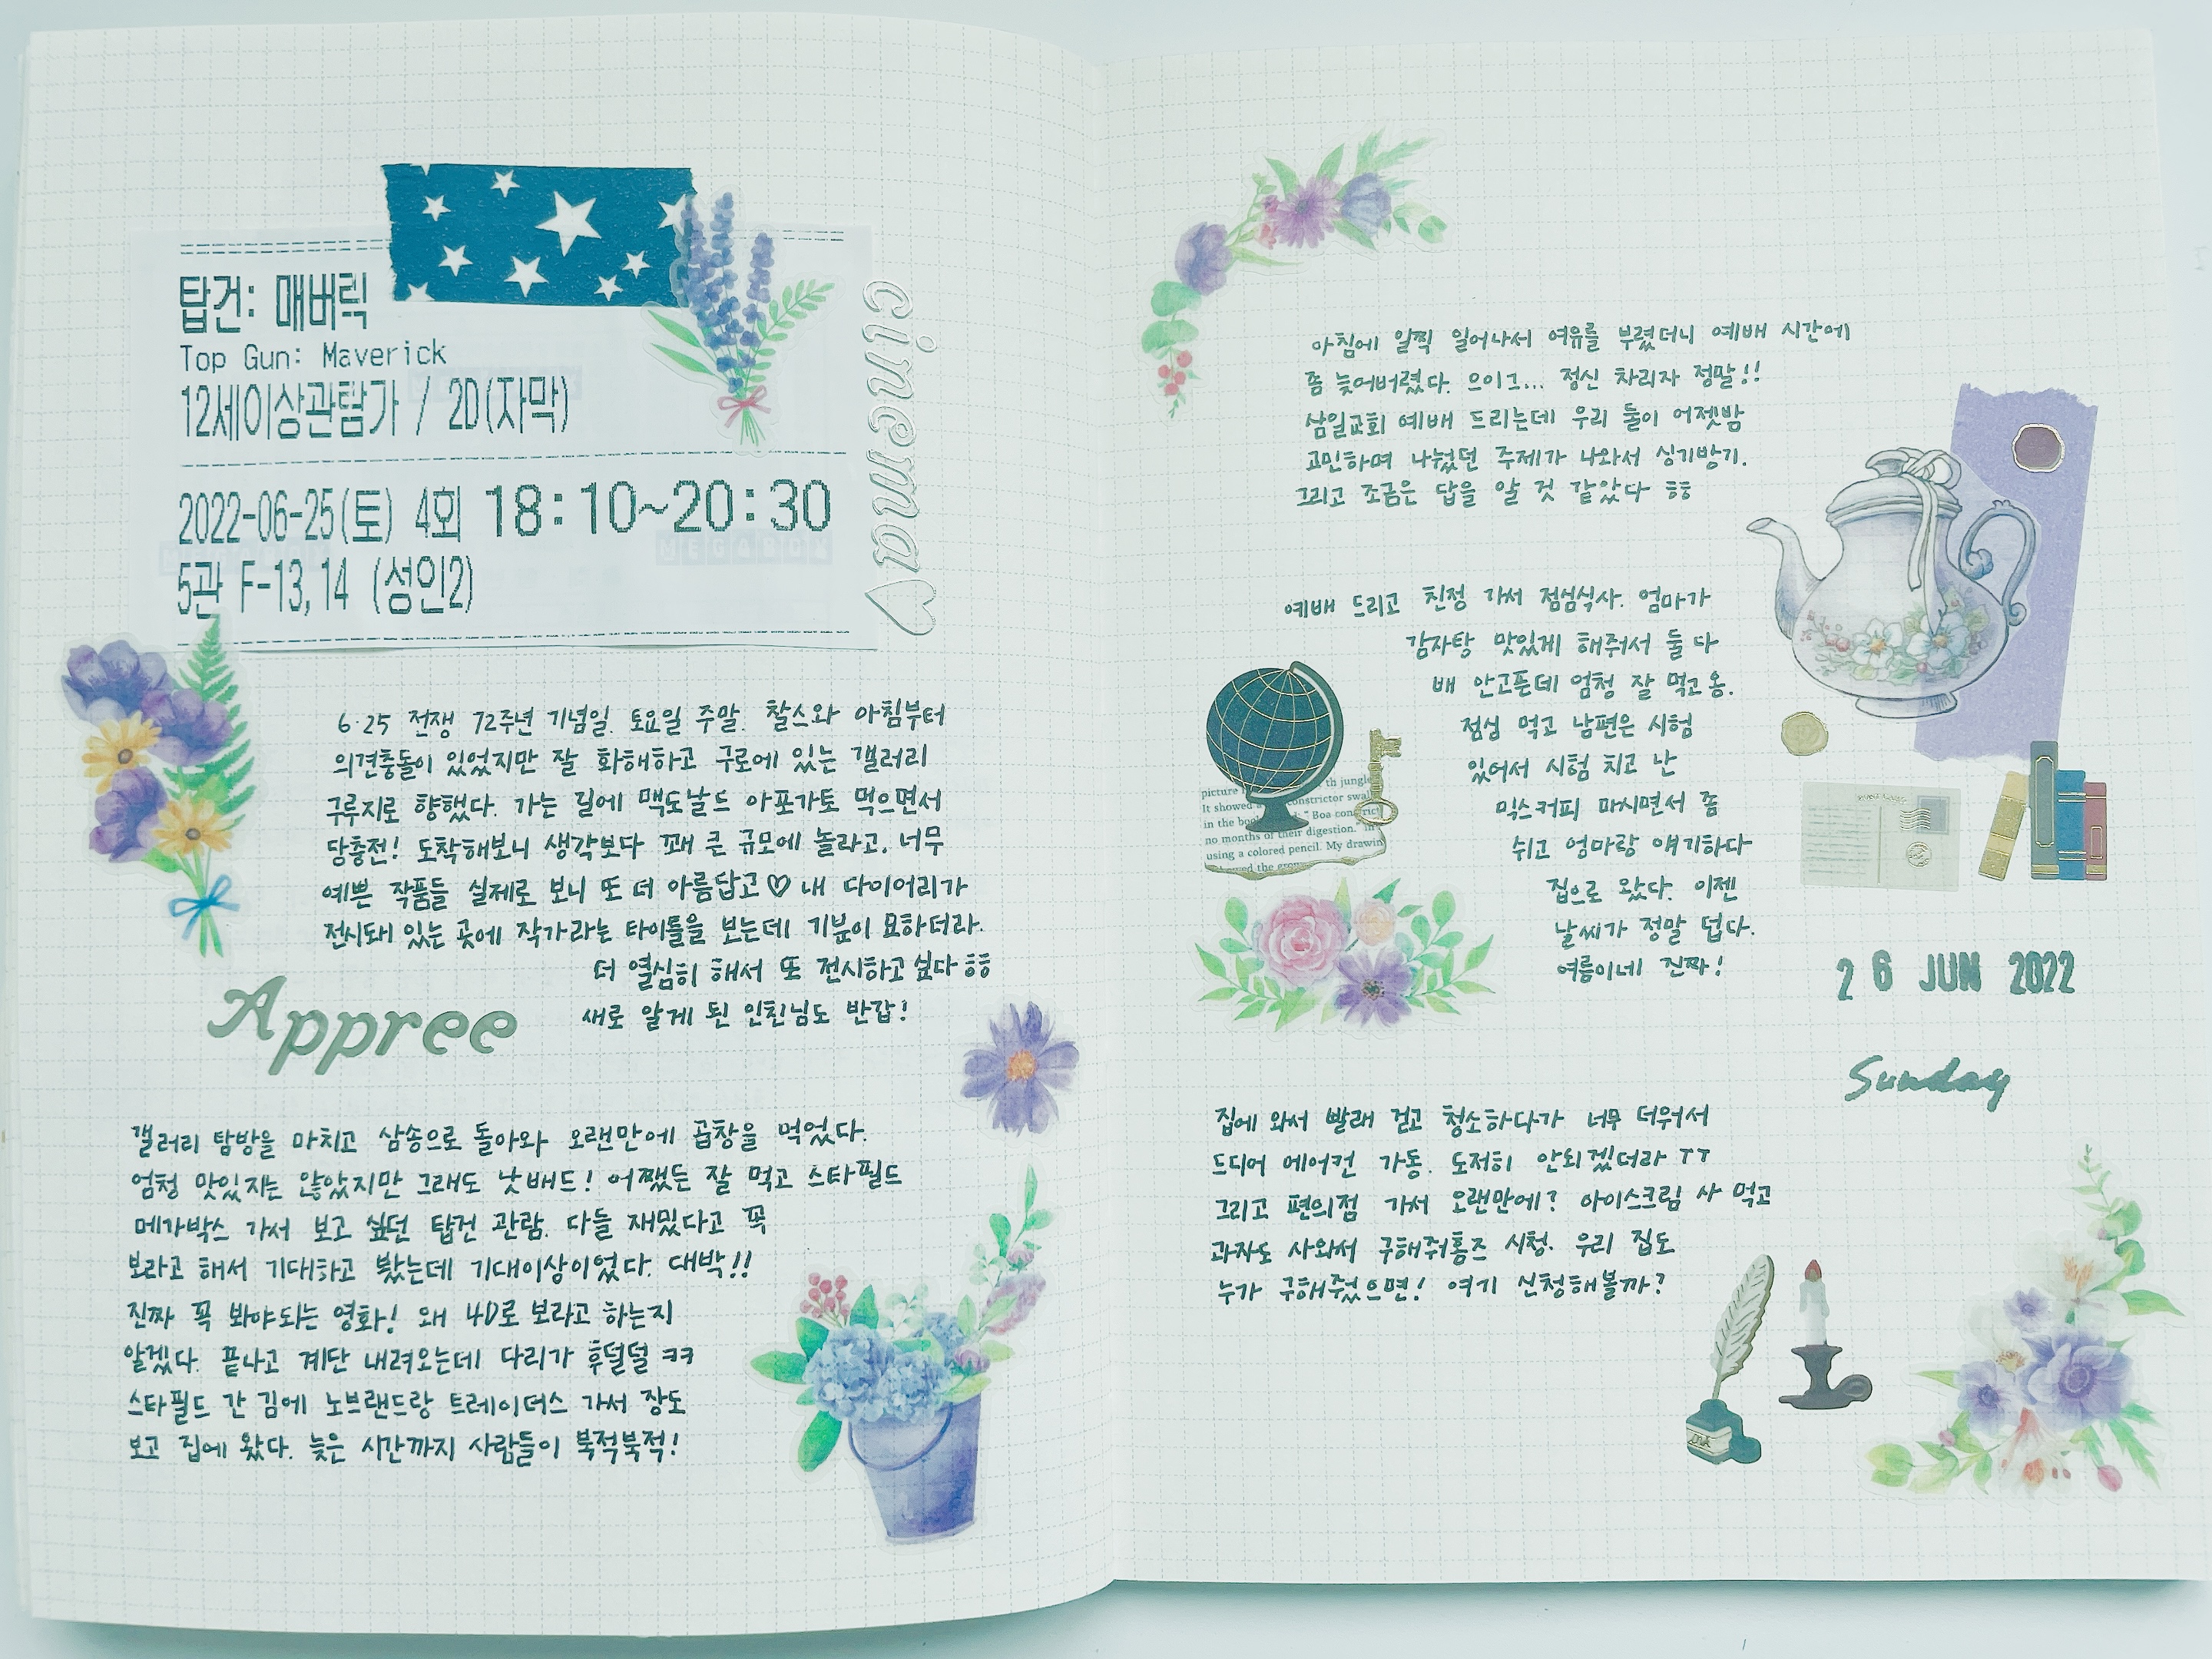 탑건: 매버릭
Top Gun: Maverick
12세이상관람가 / 2D(자막)
2022-06-25(토) 4회 18:10~20:30
5관 F-13,14 (성인2)
MEGABOX
cinema
6·25 전쟁 72주년 기념일. 토요일 주말. 찰스와 아침부터
의견충돌이 있었지만 잘 화해하고 구로에 있는 갤러리
구루지로 향했다. 가는 길에 맥도날드 아포가토 먹으면서
당충전! 도착해보니 생각보다 꽤 큰 규모에 놀라고, 너무
예쁜 작품들 실제로 보니 또 더 아름답고♡ 내 다이어리가
전시돼 있는 곳에 작가라는 타이틀을 보는데 기분이 묘하더라.
더 열심히 해서 또 전시하고 싶다 ㅎㅎ
새로 알게 된 인친님도 반갑!
Appree
갤러리 탐방을 마치고 삼송으로 돌아와 오랜만에 곱창을 먹었다.
엄청 맛있지는 않았지만 그래도 낫배드! 어쨌든 잘 먹고 스타필드
메가박스 가서 보고 싶던 탑건 관람. 다들 재밌다고 꼭
보라고 해서 기대하고 봤는데 기대이상이었다. 대박!!
진짜 꼭 봐야되는 영화! 왜 4D로 보라고 하는지
알겠다. 끝나고 계단 내려오는데 다리가 후덜덜 ㅋㅋ
스타필드 간 김에 노브랜드랑 트레이더스 가서 장도
보고 집에 왔다. 늦은 시간까지 사람들이 북적북적!
아침에 일찍 일어나서 여유를 부렸더니 예배 시간에
좀 늦어버렸다. 으이그... 정신 차리자 정말!!
삼일교회 예배 드리는데 우리 둘이 어젯밤
고민하며 나눴던 주제가 나와서 싱기방기.
그리고 조금은 답을 알 것 같았다 ㅎㅎ
예배 드리고 친정 가서 점심식사. 엄마가
감자탕 맛있게 해줘서 둘 다
배 안고픈데 엄청 잘 먹고 옴.
점심 먹고 남편은 시험
있어서 시험 치고 난
믹스커피 마시면서 좀
쉬고 엄마랑 얘기하다
집으로 왔다. 이젠
날씨가 정말 덥다.
여름이네 진짜!
picture th jungle
It showed constrictor swal
in the boo d: " Boa constrict
no months of their digestion. In
using a colored pencil. My drawin
26 JUN 2022
Sunday
집에 와서 빨래 걷고 청소하다가 너무 더워서
드디어 에어컨 가동. 도저히 안되겠더라 ㅜㅜ
그리고 편의점 가서 오랜만에? 아이스크림 사 먹고
과자도 사와서 구해줘홈즈 시청. 우리 집도
누가 구해줬으면! 여기 신청해볼까?